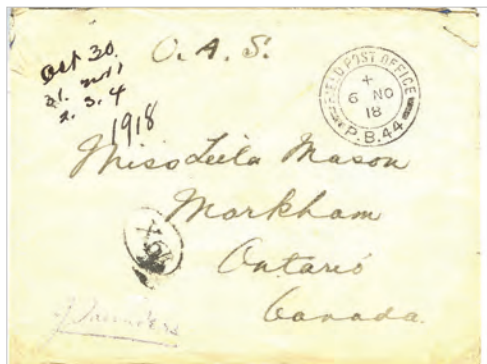 Oct 30.
31. Nov 1
2. 3. 4
1918
O. A. S.
FIELD POST OFFICE
6 NO
18
P.B.44
Miss Leila Mason
Markham
Ontario
Canada.